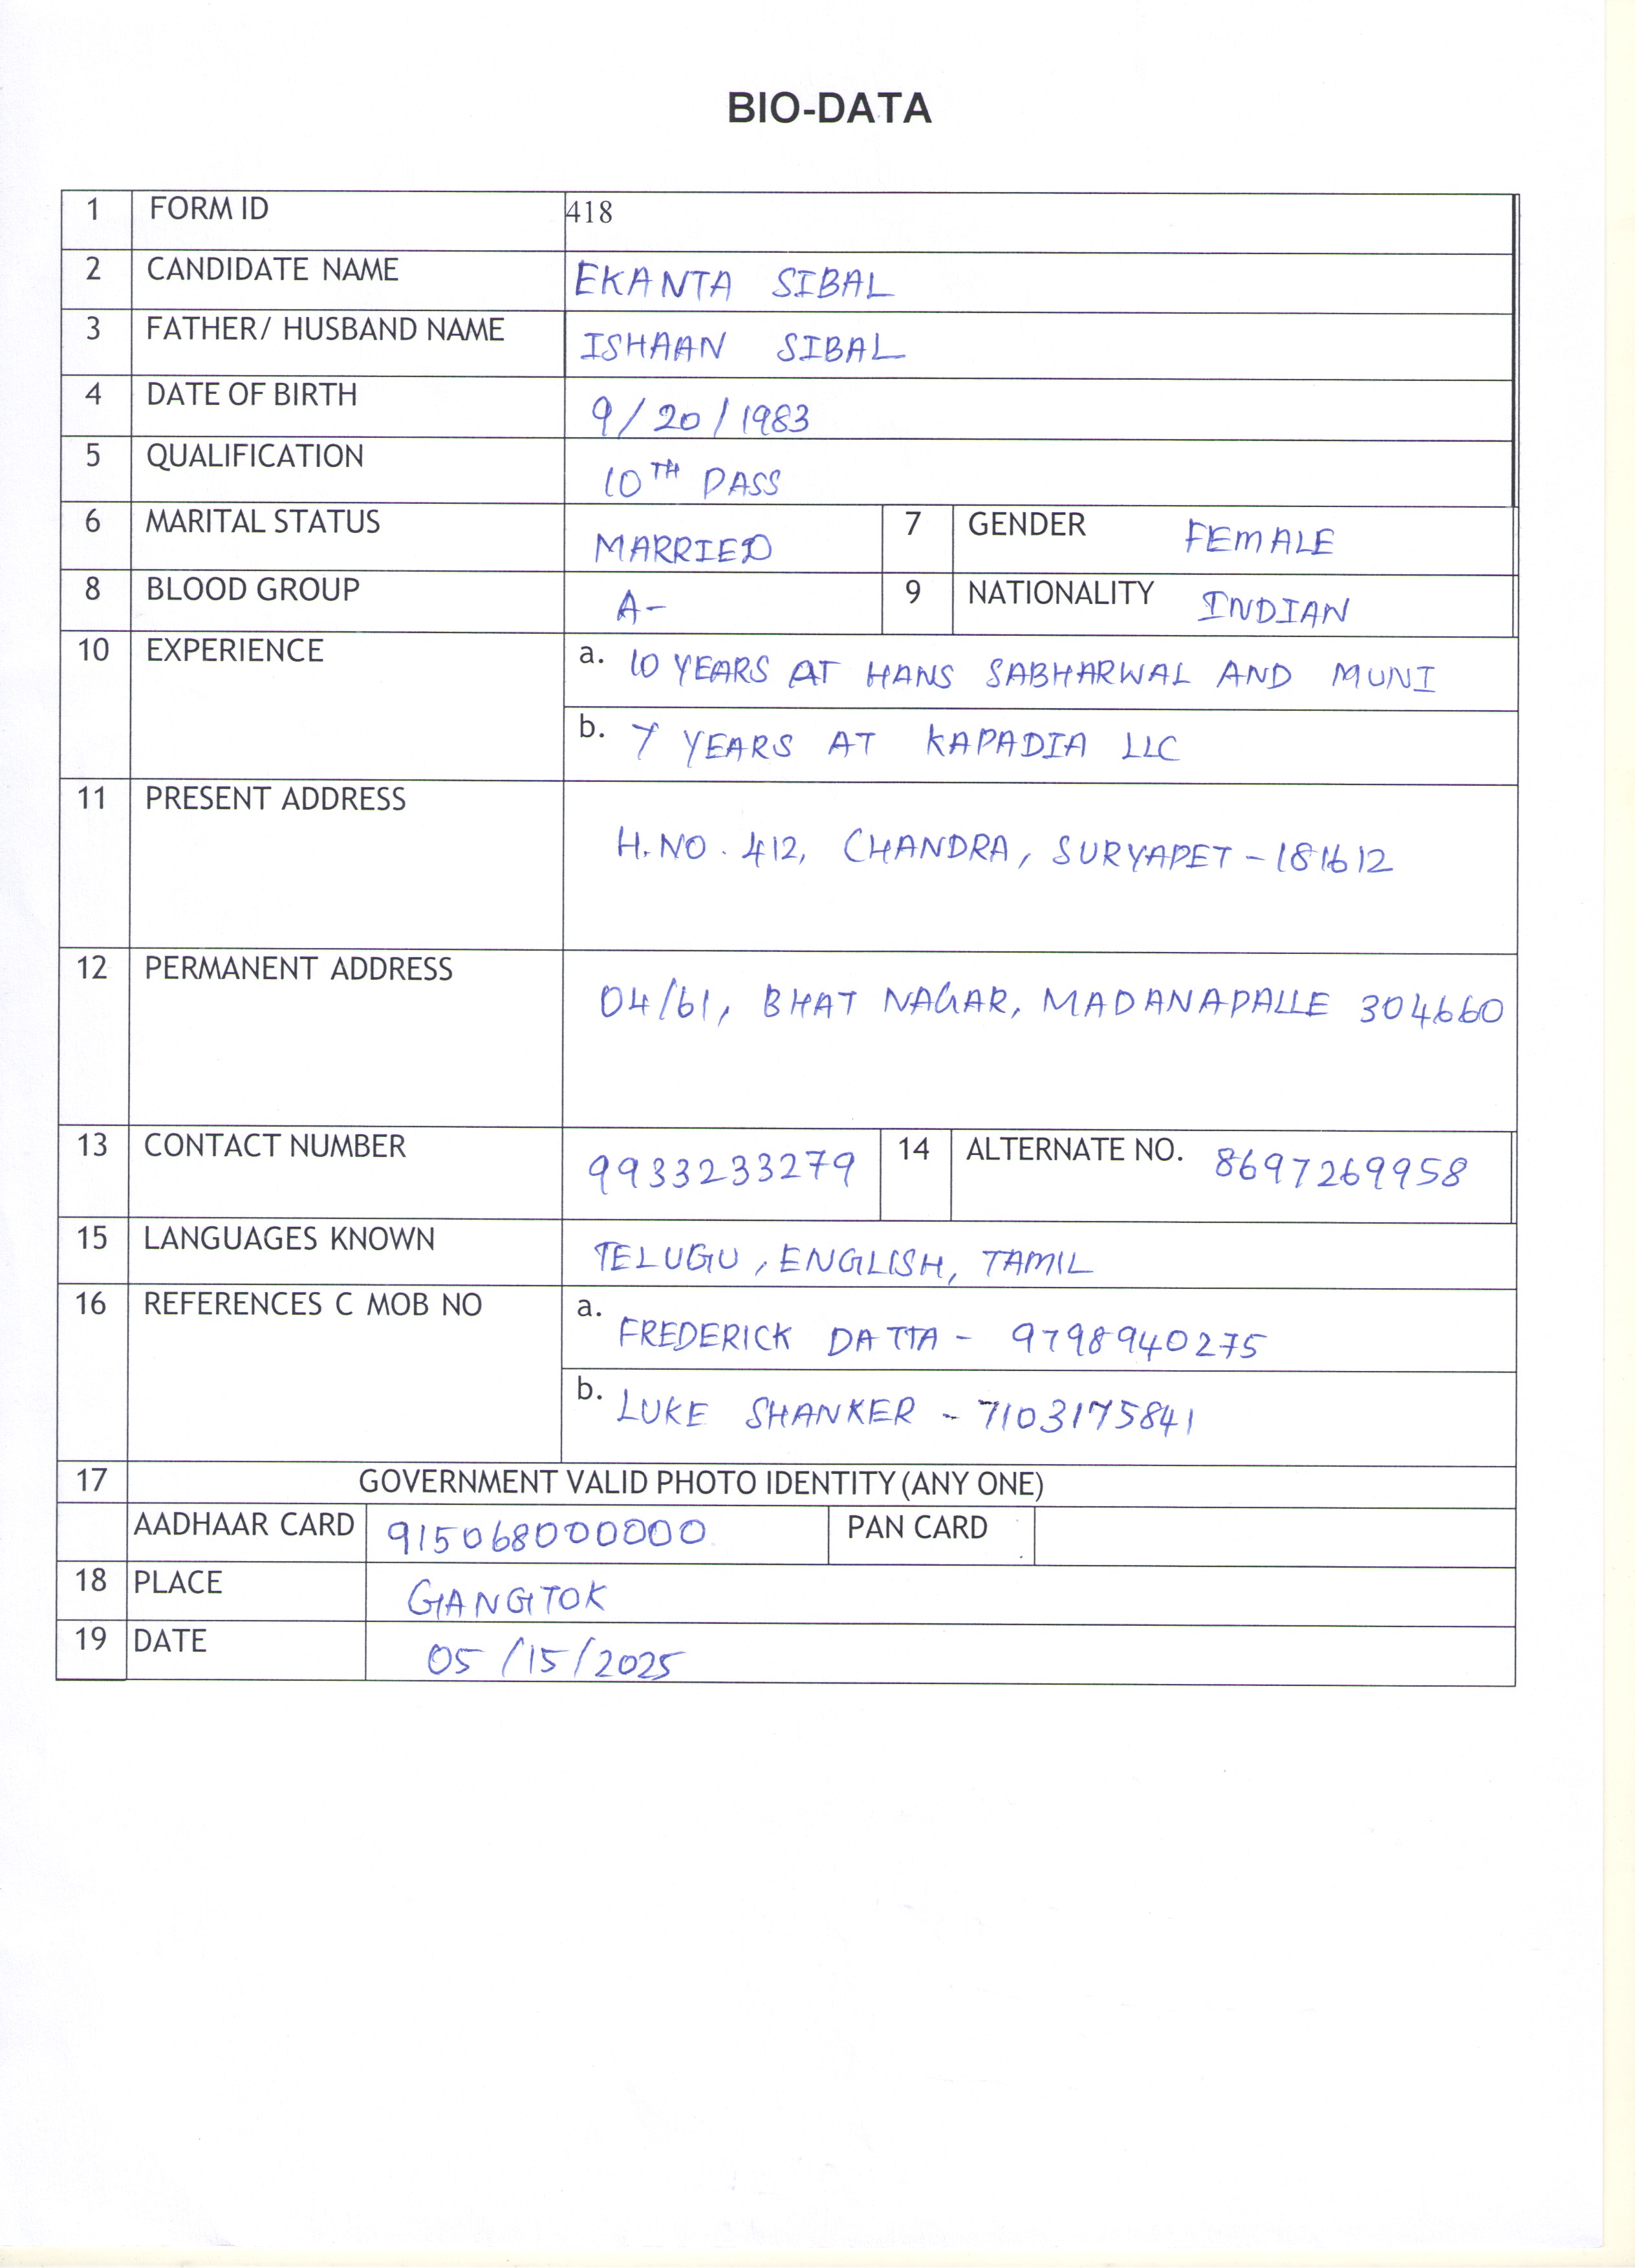 BIO-DATA
1 FORM ID 418
2 CANDIDATE NAME EKANTA SIBAL
3 FATHER/ HUSBAND NAME ISHAAN SIBAL
4 DATE OF BIRTH 9/20/1983
5 QUALIFICATION 10TH PASS
6 MARITAL STATUS MARRIED 7 GENDER FEMALE
8 BLOOD GROUP A- 9 NATIONALITY INDIAN
10 EXPERIENCE a. 10 YEARS AT HANS SABHARWAL AND MUNI
b. 7 YEARS AT KAPADIA LLC
11 PRESENT ADDRESS H.NO. 412, CHANDRA, SURYAPET - 181612
12 PERMANENT ADDRESS 04/61, BHAT NAGAR, MADANAPALLE 304660
13 CONTACT NUMBER 9933233279 14 ALTERNATE NO. 8697269958
15 LANGUAGES KNOWN TELUGU, ENGLISH, TAMIL
16 REFERENCES C MOB NO a. FREDERICK DATTA - 9798940275
b. LUKE SHANKER - 7103175841
17 GOVERNMENT VALID PHOTO IDENTITY (ANY ONE)
AADHAAR CARD 915068000000 PAN CARD
18 PLACE GANGTOK
19 DATE 05/15/2025